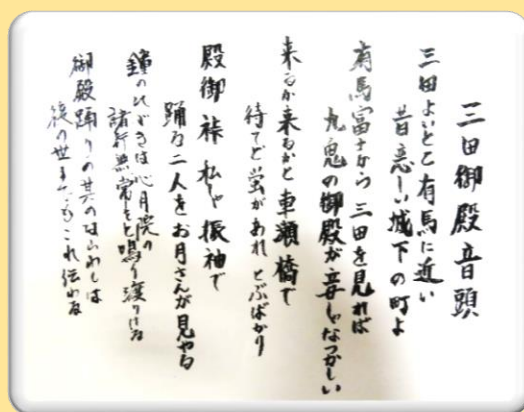 三田御殿音頭
三田よいとこ有馬に近い
昔恋しい城下の町よ
有馬富士から三田を見れば
九鬼の御殿が妾しゃなつかしい
来るか来るかと車瀬橋で
待てど蛍があれとぶばかり
殿御裃私しゃ振袖で
踊る二人をお月さんが見やる
鐘のひびきは心月院の
諸行無常をと鳴り渡りける
御殿踊りの其の
後の世までもこれ伝わる